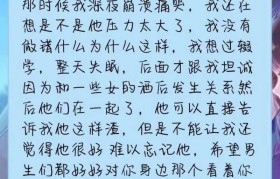 那时候我深夜崩溃痛哭，我还在
想是不是他压力太大了，我没有
做错什么为什么这样，我想过辍
学，整天失眠，后面才跟我坦诚
因为和一些女的酒后发生关系然
后他们在一起了，他可以直接告
诉我他这样渣，但是不能让我还
觉得他很好 难以忘记他，希望男
生们都好好对你身边那个看着你